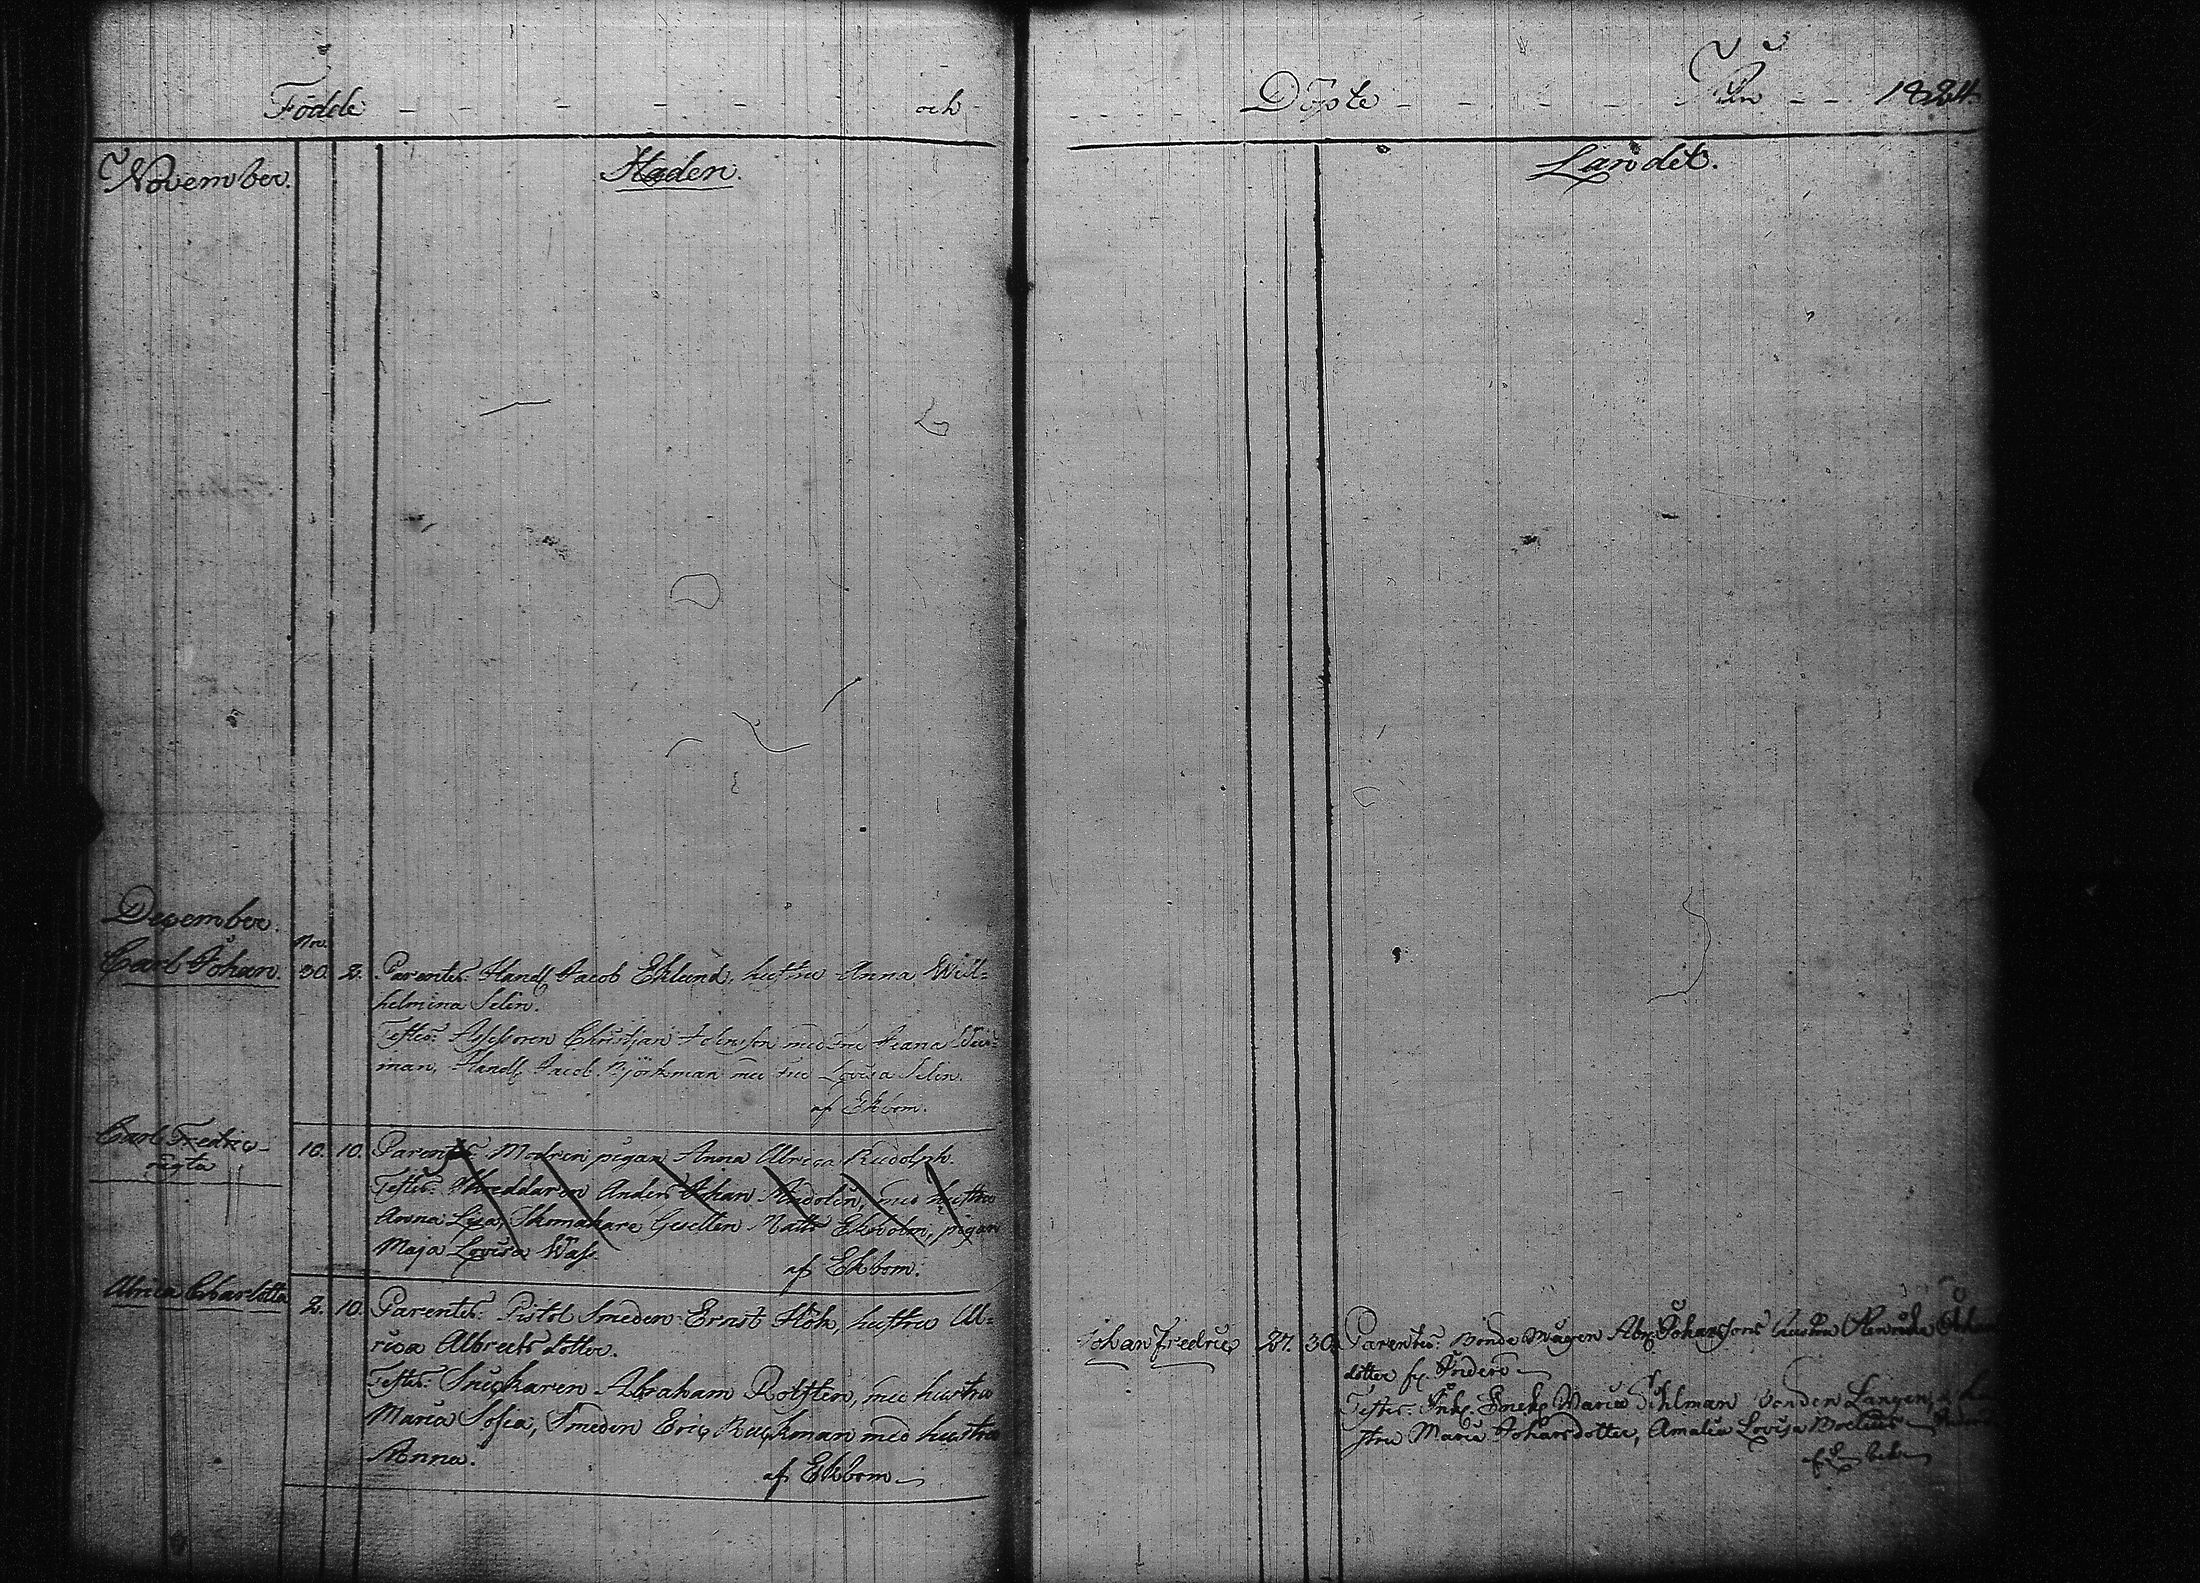 Födde - - - - - och
November. Staden.
December.
Nov.
Carl Johan. 30. 2. Parentes. Handl. Jacob Eklund, hustru Anna Wil=
helmina Selin.
Testes: Assessoren Christjan Johnsson med Fru
man, Handl. Jacob Björkman med Fru Lovisa Selin.
af Ekbom.
Carl Fredric 10. 10. Parentes. Modren pigan Anna Ulrica Rudolph.
oägta
Testes: Skreddaren Anders Johan med hustru
Anna Lisa, Skomakare Gesellen Matts Ekholm, pigan
Maja Lovisa Wass.
af Ekbom.
Ulrica Charlotta 2. 10. Parentes. Pistol Smeden Ernst Hök, hustru Ul=
rica Albrects dotter.
Testes. Snickaren Abraham Rotsten, med hustru
Maria Sofia, Smeden Eric Ruckman med hustru
Anna.
af Ekbom
Döpte - - - - - - År - - 1824.
Landet.
Johan Fredric 27. 30. Parentes. Bonde Mågen Abr. Johanssons hustru
dotter
Testes. Maria Öhlman
stru Maria Johansdotter, Amalia Lovisa